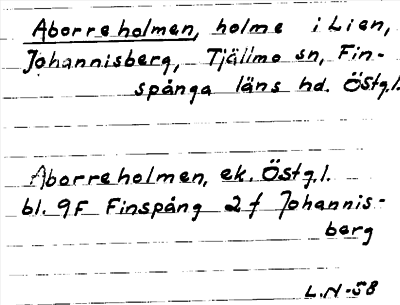 Aborreholmen, holme i Lien,
Johannisberg, Tjällmo sn, Fin-
spånga läns hd. Östg.l.
Aborreholmen, ek. Östg.l.
bl. 9F Finspång 2 f Johannis-
berg
L.N-58